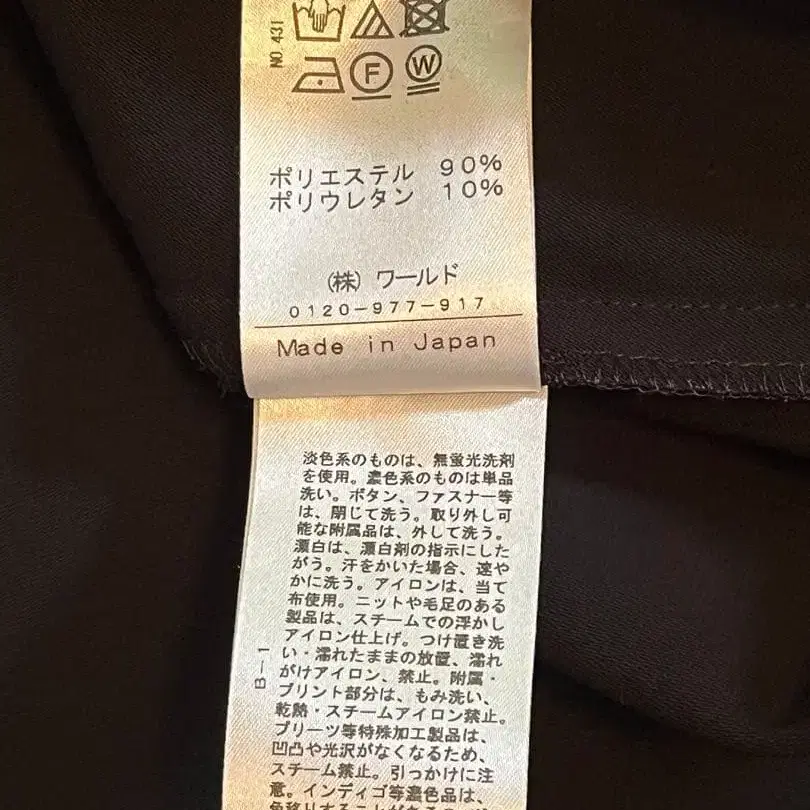 NO.431
F
W
ポリエステル 90%
ポリウレタン 10%
(株) ワールド
0120-977-917
Made in Japan
淡色系のものは、無蛍光洗剤
を使用。濃色系のものは単品
洗い。ボタン、ファスナー等
は、閉じて洗う。取り外し可
能な附属品は、外して洗う。
漂白は、漂白剤の指示にした
がう。汗をかいた場合、速や
かに洗う。アイロンは、当て
布使用。ニットや毛足のある
製品は、スチームでの浮かし
アイロン仕上げ。つけ置き洗
い・濡れたままの放置、濡れ
がけアイロン、禁止。附属・
プリント部分は、もみ洗い、
乾熱・スチームアイロン禁止。
プリーツ等特殊加工製品は、
凹凸や光沢がなくなるため、
スチーム禁止。引っかけに注
意。インディゴ等濃色品は、
色移りすることがある
B-1